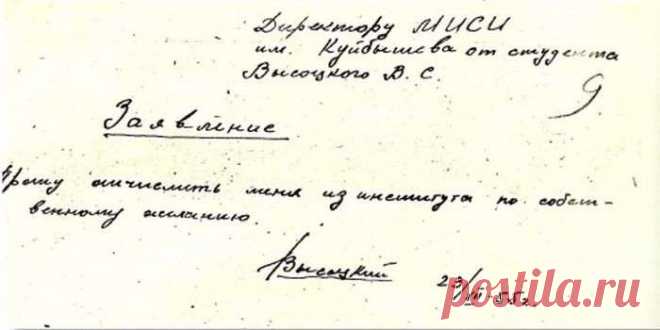 Директору МИСИ
им. Куйбышева от студента
Высоцкого В. С.
Заявление
Прошу отчислить меня из института по собст-
венному желанию.
Высоцкий 23/XII-55г.
postila.ru